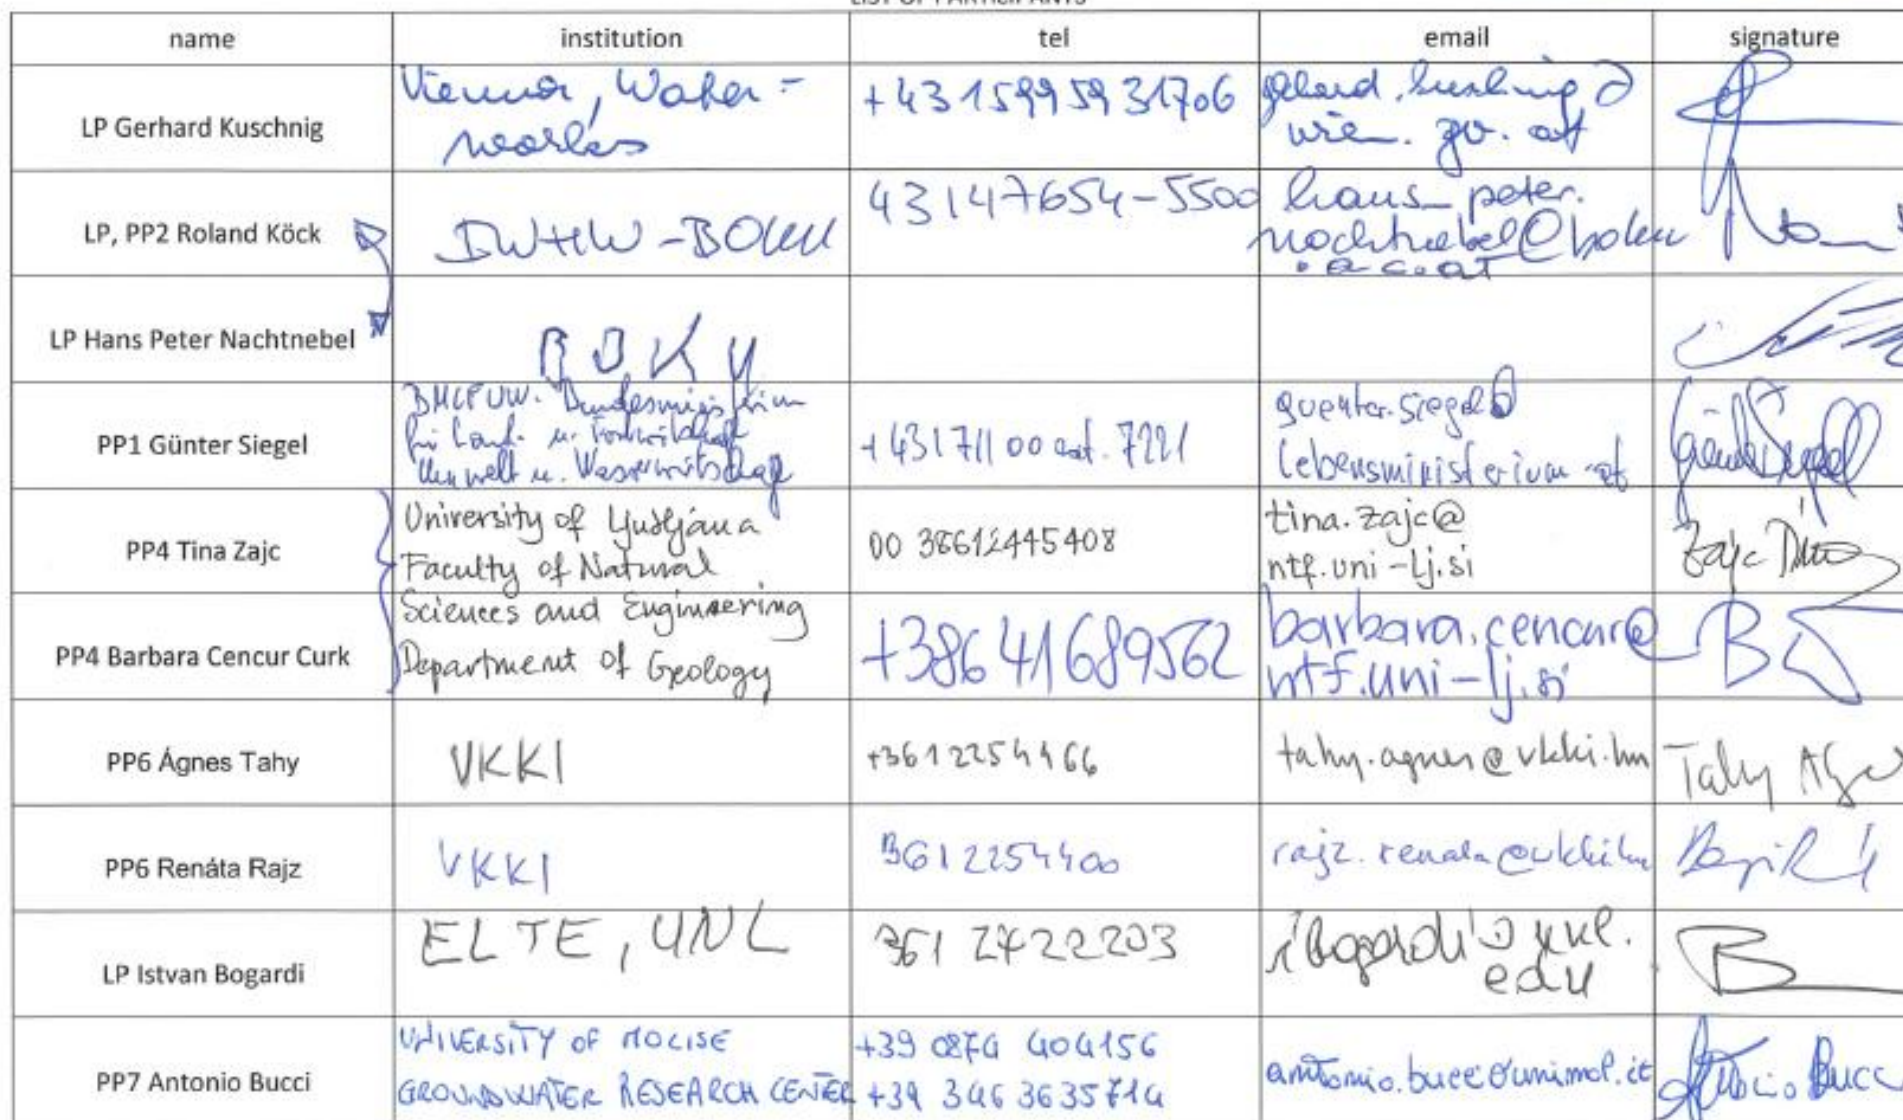 LIST OF PARTICIPANTS
name institution tel email signature
LP Gerhard Kuschnig
Vienna, Water-
works
+43 1599 59 31706
wien.gv.at
LP, PP2 Roland Köck
IWHW-BOKU
43147654-5500
hans_peter.
nachtnebel@boku
.ac.at
LP Hans Peter Nachtnebel
BOKU
PP1 Günter Siegel
BMLFUW. Bundesministerium
für Land- u. Forstwirtschaft
Umwelt u. Wasserwirtschaft
+431 71100 ext. 7221
guenter.siegel@
lebensministerium.at
Günter Siegel
PP4 Tina Zajc
University of Ljubljana
Faculty of Natural
Sciences and Engineering
Department of Geology
00 38612445408
tina.zajc@
ntf.uni-lj.si
Zajc Tina
PP4 Barbara Cencur Curk
+38641689562
barbara.cencur@
ntf.uni-lj.si
PP6 Ágnes Tahy
VKKI
+3612254466
tahy.agnes@vkki.hu
Tahy
PP6 Renáta Rajz
VKKI
3612254400
rajz.renata@vkki.hu
LP Istvan Bogardi
ELTE, UNL
361 2422203
edu
PP7 Antonio Bucci
UNIVERSITY OF MOLISE
GROUNDWATER RESEARCH CENTER
+39 0874 404156
+39 346 3635714
antonio.bucci@unimol.it
Antonio Bucci